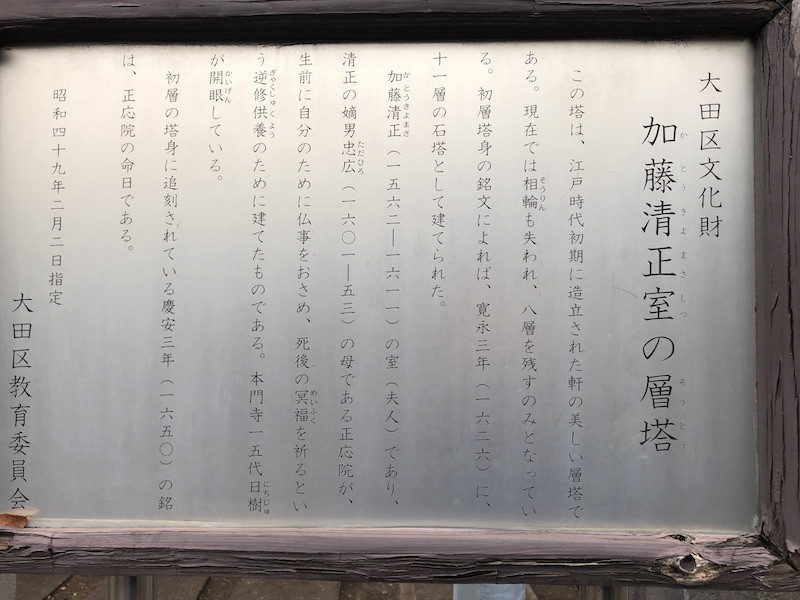 大田区文化財
加藤清正室の層塔
かとうきよまさしつ
そうとう
この塔は、江戸時代初期に造立された軒の美しい層塔で
ある。現在では相輪も失われ、八層を残すのみとなってい
そうりん
る。初層塔身の銘文によれば、寛永三年（一六二六）に、
十一層の石塔として建てられた。
加藤清正（一五六二―一六一一）の室（夫人）であり、
かとうきよまさ
清正の嫡男忠広（一六〇一―五三）の母である正応院が、
ただひろ
生前に自分のために仏事をおさめ、死後の冥福を祈るとい
めいふく
う逆修供養のために建てたものである。本門寺一五代日樹
ぎゃくしゅくよう
にちじゅ
が開眼している。
かいげん
初層の塔身に追刻されている慶安三年（一六五〇）の銘
は、正応院の命日である。
昭和四十九年二月二日指定
大田区教育委員会